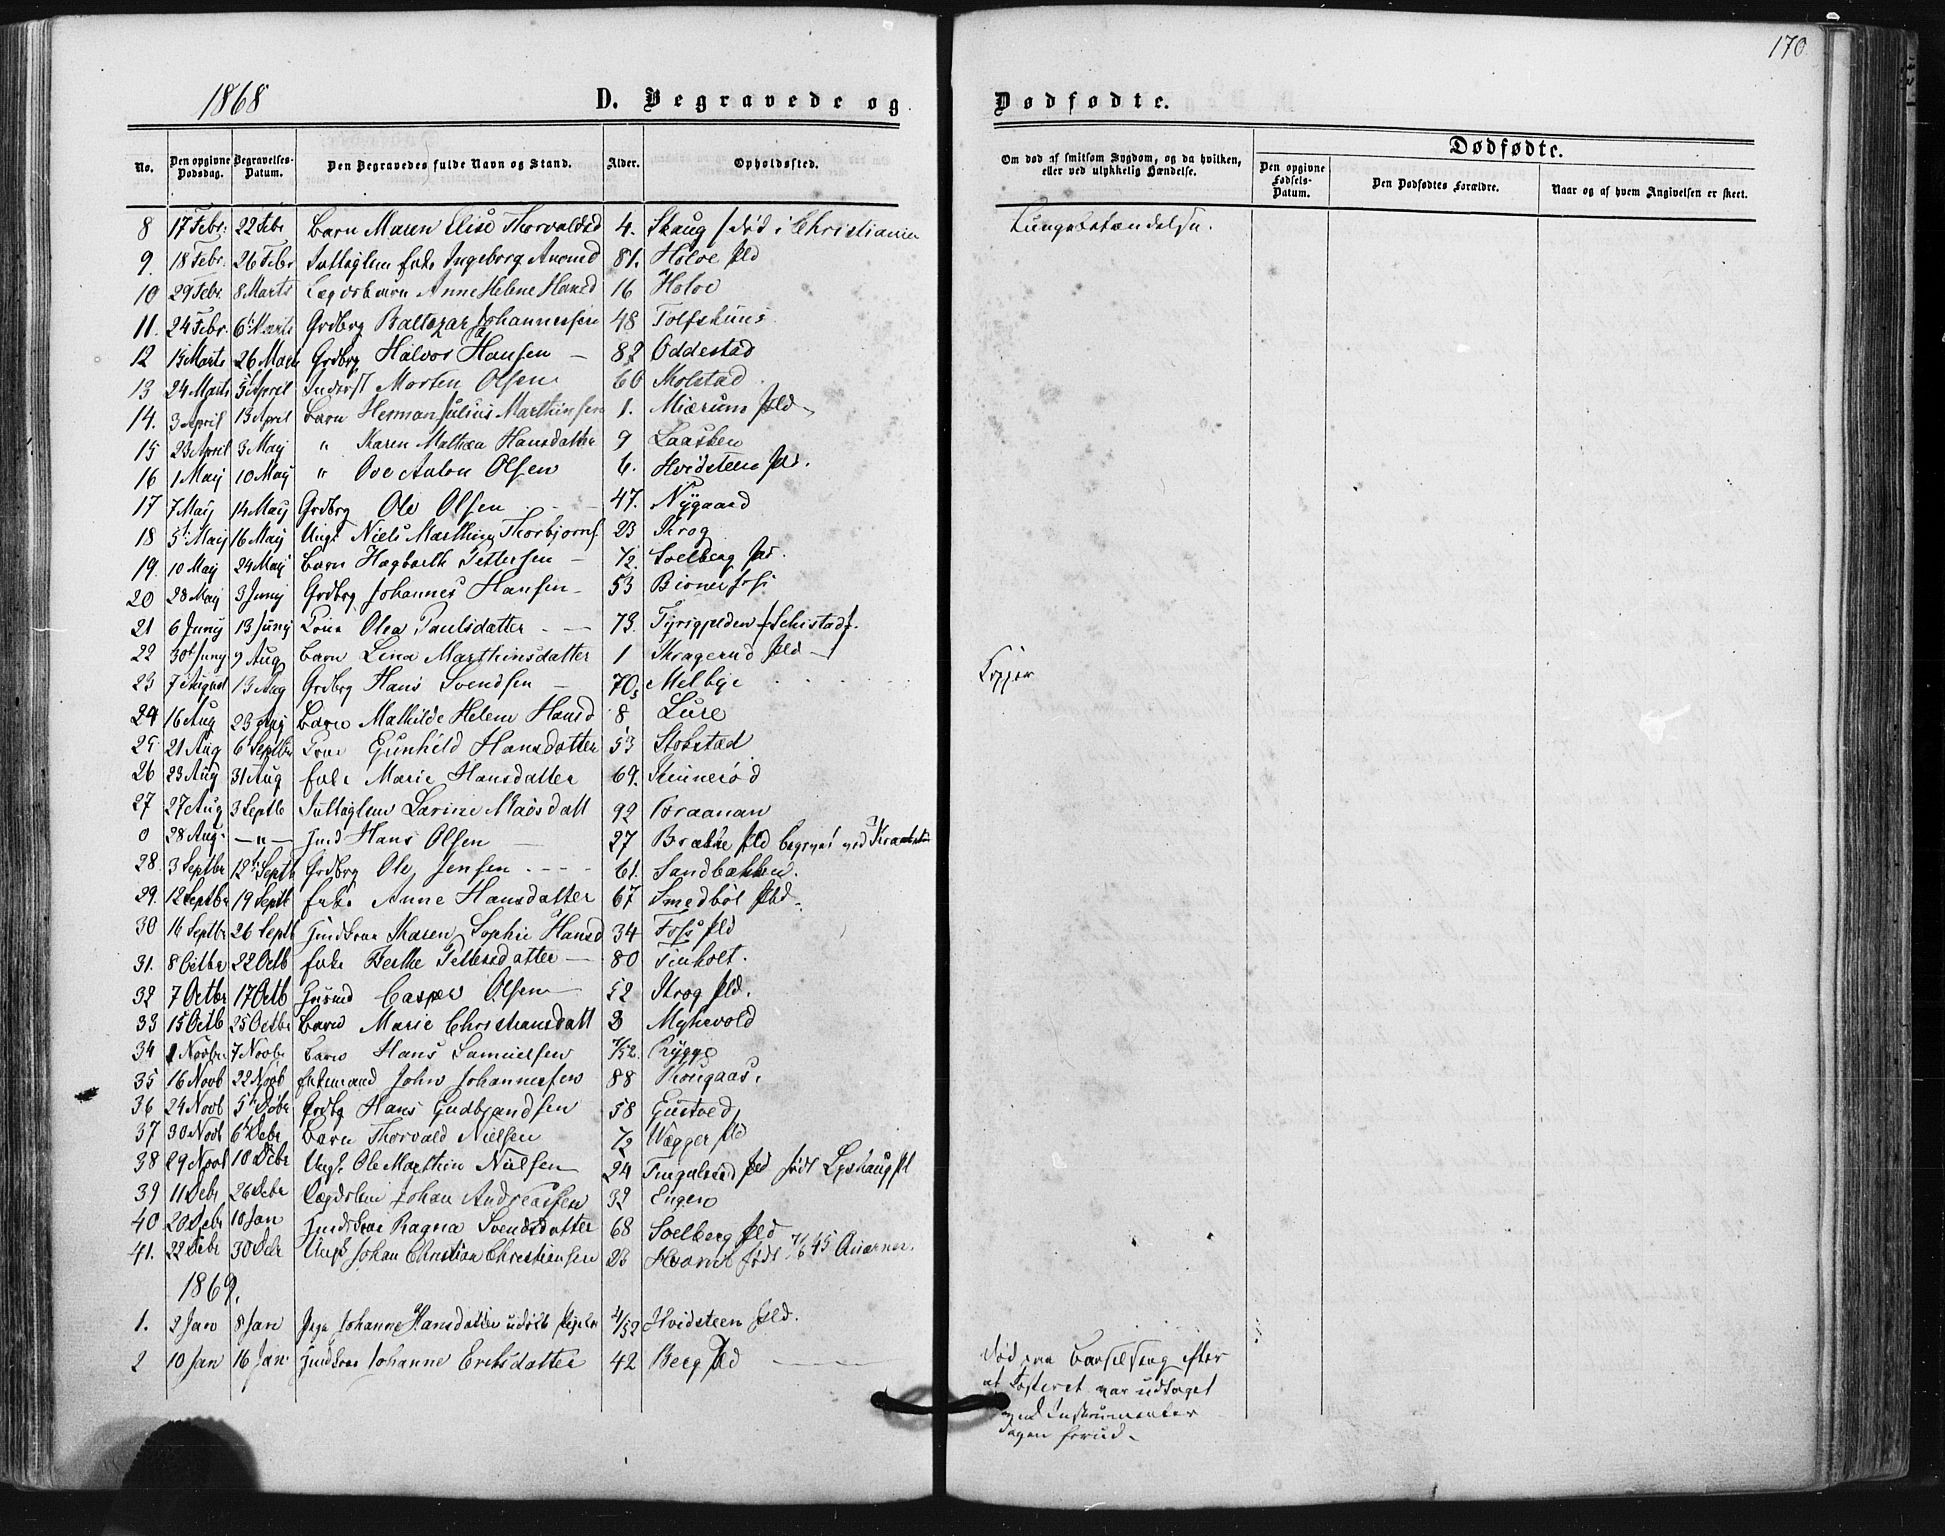 170
1868 D. Begravede og Dødfødte.
No. Den opgivne Dødsdag. Begravelses-Datum. Den Begravedes fulde Navn og Stand. Alder. Opholdssted. Om død af smitsom Sygdom, og da hvilken, eller ved ulykkelig Hændelse. Dødfødte. Den opgivne Fødsels-Datum. Den Dødfødtes Forældre. Naar og af hvem Angivelsen er skeet.
8 17 Febr: 22 Febr Barn Maren Elise Thorvaldsd 4. Skaug / død i Christiania Lungebetændelse.
9. 18 Febr. 26 Febr Enke Ingeborg 81. Holve Pld
10 29 Febr. 8 Marts Lægdsbarn Anne Helene Hansd 16 Holve
11. 24 Febr. 6 Marts Grdbrg Baltazar Johannessen 48
12 15 Marts 26 Marts Grdbrg Halvor Hansen 82 Oddestad
13 24 Marts 5 April Inderst Morten Olsen 60 Kolstad
14. 3 April 13 April Barn Herman Julius Marthinsen 1. Miærum Pld
15 23 April 3 Maij " Karen Mathea Hansdatter 9 Laasken
16 1 Maij 10 Maij " Ove Anton Olsen 6. Hvidsteen Pld.
17 7 Maij 14 Maij Grdbrg Ole Olsen 47. Nygaard
18 5 Maij 16 Maij Ungk Niels Marthin Thorbjørns. 23 Krog
19. 10 Maij 24 Maij Barn Hagbarth Pettersen 1/2. Solberg Pld.
20 28 Maij 3 Junij Grdbrg Johannes Hansen 53
21 6 Junij 13 Junij Kone Olea Paulsdatter 73. Tyrigjelden
22 30 Juny 9 Aug Barn Lina Marthinsdatter 1 Kragerud Pld
23 7 August 13 Aug Grdbrg Hans Svendsen 70 Melbye
24 16 Aug 23 Aug Barn Mathilde Helene Hansd 8 Lure
25 21 Aug 6 Septbr Kone Gunhild Hansdatter 53 Stokstad
26 23 Aug 31 Aug Enke Marie Hansdatter 69. Kinnerød
27 27 Aug 3 Septb Larine Madsdatt 92 Braanan
0 28 Aug: — " — Hmd Hans Olsen 27 Brække Pld
28. 3 Septbr 12 Septb Grdbrg Ole Jensen 61. Sandbækken.
29. 12 Septbr 19 Septb Enke Anne Hansdatter 67 Smedbøl Pld.
30 16 Septbr 26 Septb Hmdskone Karen Sophie Hansd 34 Foss Pld
31. 8 Octbr 22 Octb Enke Berthe Pettersdatter 80 Finholt.
32 7 Octbr 17 Octb Casper Olsen 52 Krog Pld.
33 15 Octb 25 Octbr Barn Marie Christiansdatt 3 Myhrvold
34 1 Novbr 7 Novbr Barn Hans Samuelsen 7/52. Rygge
35 16 Novb 22 Novb Enkemand John Johannessen 88
36 24 Novb 5 Debr Grdbg Hans Gudbrandsen 58
37 30 Novb 6 Debr Barn Thorvald Nielsen 1/2 Vægger Pld
38 29 Novb 10 Debr Ungk. Ole Marthin Nielsen 24 Pld født Lyshaug Pl
39 11 Debr 26 Debr Lægdslem Johan Andreassen 32 Engen
40 20 Debr 10 Jan Hmdskone Ragna Svendsdatter 68 Solberg Pld
41. 22 Debr 30 Debr Ungk Johan Christian Christiansen 23 født 7/6 45
1869.
1. 2 Jan 8 Jan Johanne Hansdatter udøbt Pige 4/52 Hvidsteen Pld.
2 10 Jan 16 Jan. Hmdskone Johanne Eriksdatter 42 Berg Pld Død paa Barselseng efter
at Fosteret var udtaget
med Instrumenter
dagen forud.